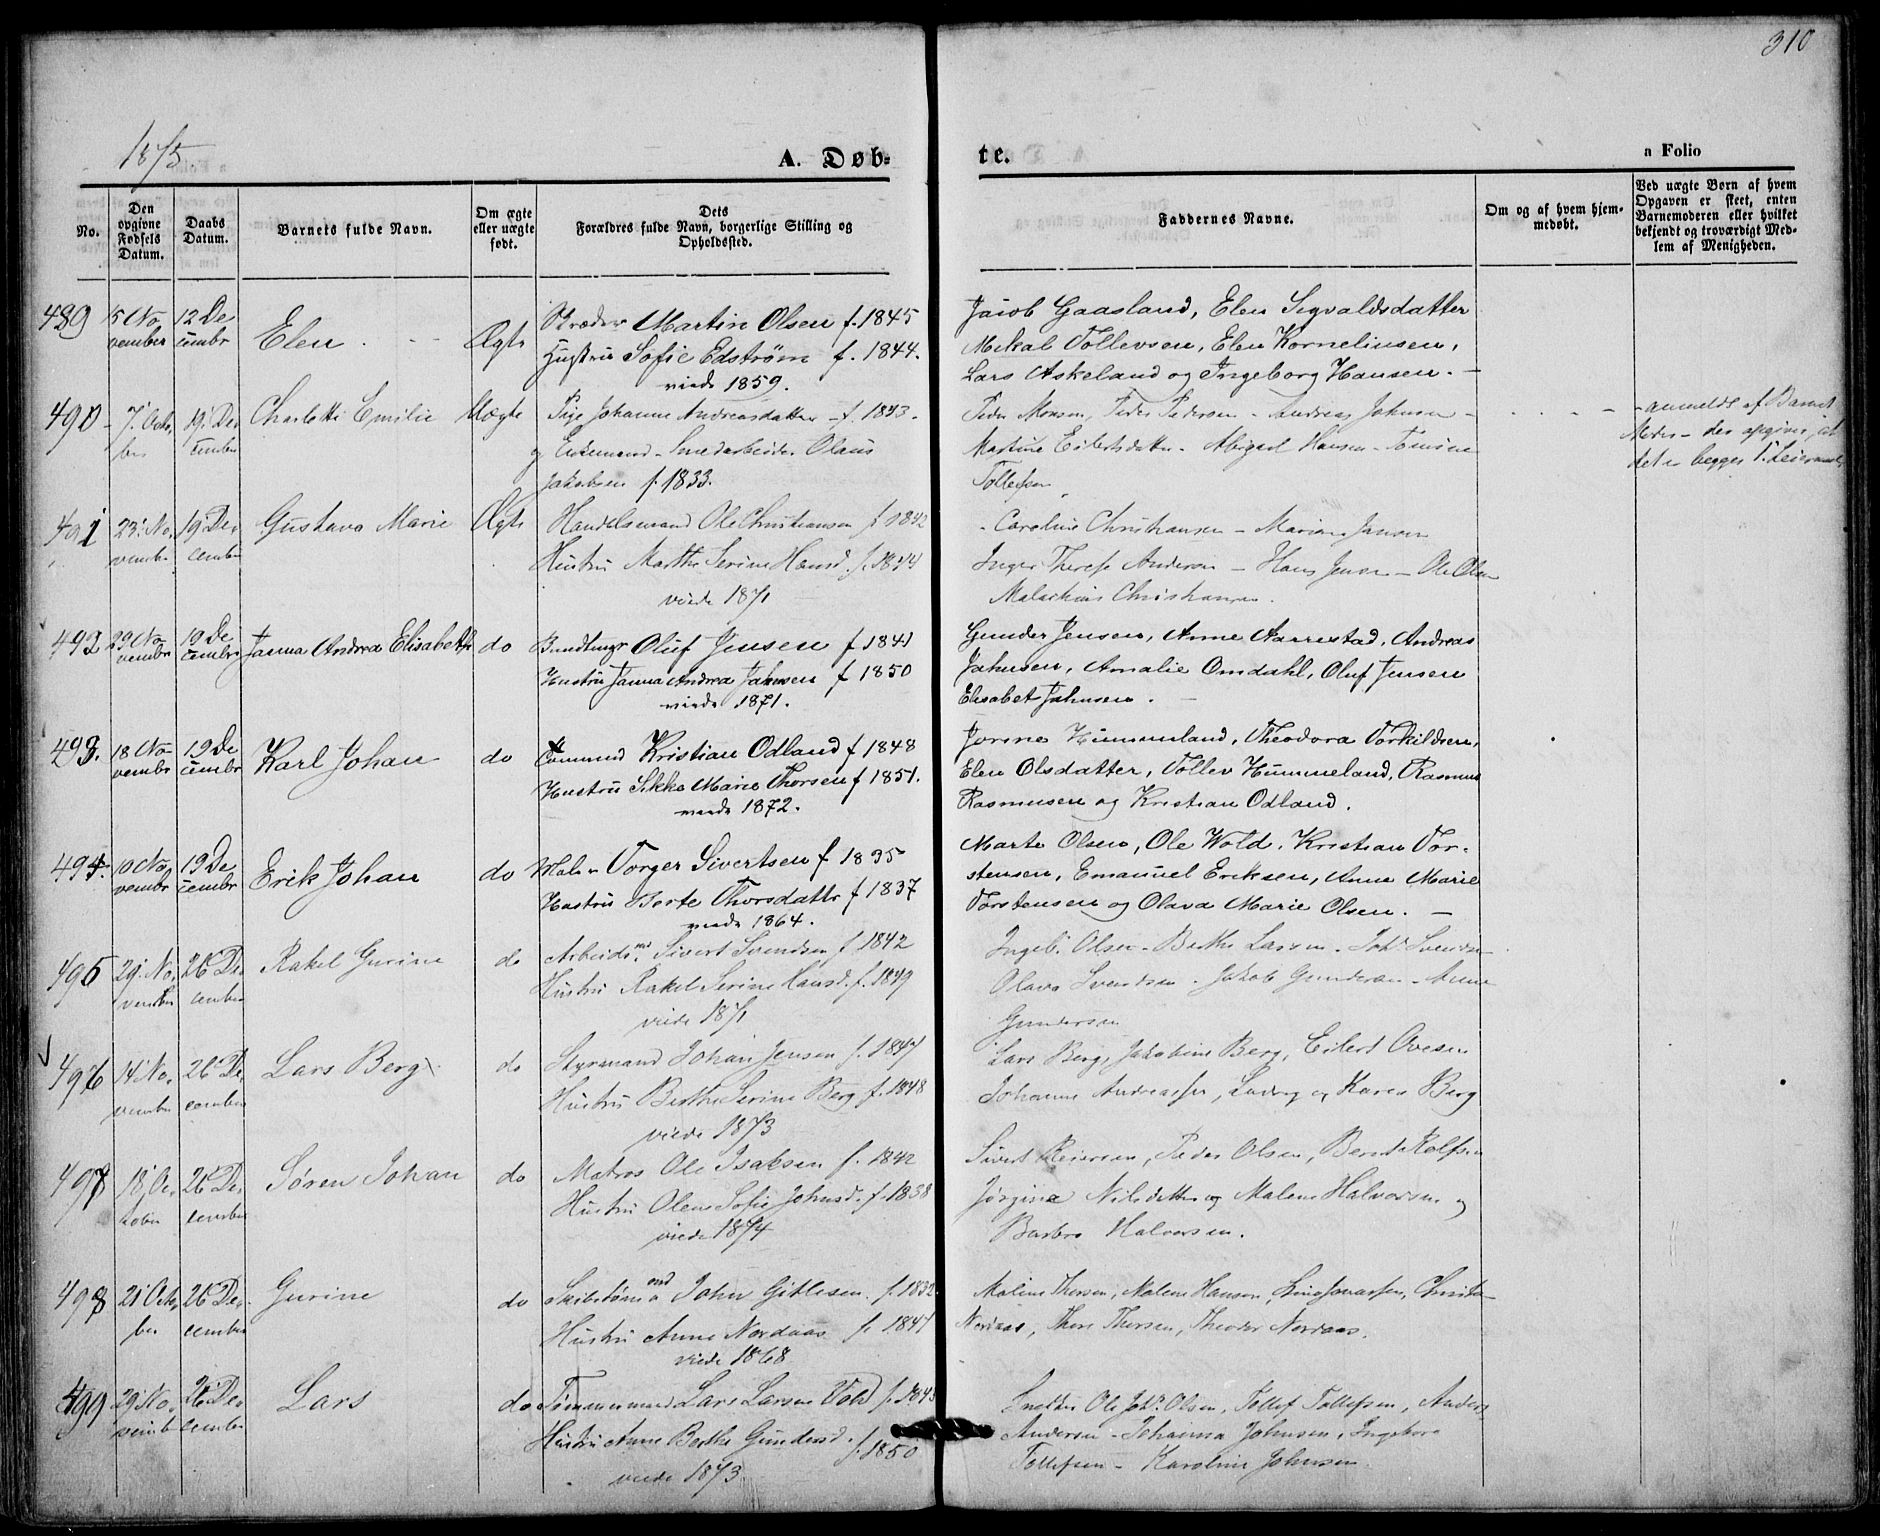 310
1875
A. Døb-
te.
a Folio
No.
Den opgivne Fødsels Datum.
Daabs Datum.
Barnets fulde Navn.
Om ægte eller uægte født.
Dets Forældres fulde Navn, borgerlige Stilling og Opholdssted.
Faddernes Navne.
Om og af hvem hjem-
medøbt.
Ved uægte Børn af hvem
Opgaven er skeet, enten
Barnemoderen eller hvilket
bekjendt og troværdigt Med-
lem af Menigheden.
489 15 No 12 De
vember cembr Elen Ægte
Skræder Martin Olsen f. 1845
Hustru Sofie Edstrøm f. 1844.
viede 1859.
Jacob Gaasland, Elen Sigvaldsdatter
Mikal Tollevsen, Elen Kornelinsen,
Lars Askeland og Ingeborg Hansen.
490 7. Octo 19. De
ber cember Charlotte Emilie Uægte
Pige Johanne Andreasdatter f. 1843.
og Enkemand Smedarbeider Olaus
Jakobsen f. 1833.
Peder Monsen, Peder Pedersen - Andreas Johnsen
Martine Eilertsdatter - Abigael Hansen - Tomine
Tollefsen
anmeldt af Barnets
Moder - der opgiver, at
det er begges 1. Leiermaal
491 23. No 19 De
vember cember Gustava Marie Ægte
Handelsmand Ole Christiansen f. 1842
Hustru Marthe Serine Hansd. f. 1844
viede 1871
Caroline Christiansen - Marien Jansen
Inger Therese Andersen - Hans Jensen - Ole Olsen
Malachias Christiansen.
492 29 No 19 De
vembr cembr Janna Andrea Elisabeth do
Oluf Jensen f 1841
Hustru Janna Andrea Jahnsen f 1850
viede 1871.
Gunder Jensen, Anne Aarrestad, Andreas
Jahnsen, Amalie Omdahl, Oluf Jensen
Elisabet Jahnsen.
493. 18 No 19 De
vembr cembr Karl Johan do
Kristian Odland f 1848
Hustru Sikke Marie Thorsen f 1851.
viede 1872.
Jorine Hummeland, Theodora Torkildsen,
Elen Olsdatter, Tollev Hummeland, Rasmus
Rasmusen og Kristian Odland.
494. 10 No 19 De
vembr cembr Erik Johan do
Maler Torger Sivertsen f 1835
Hustru Berte Thorsdattr f 1837
viede 1864.
Marte Olsen, Ole Wold, Kristian Tor-
stensen, Emanuel Eriksen, Anne Marie
Torstensen og Olava Marie Olsen.
495 29. No 26 De
vember cember Rakel Gurine do
Arbeidsmd Sivert Svendsen f. 1842
Hustru Rakel Serine Hansd. f. 1849
viede 1871
Ingeb. Olsen - Berthe Larsen - Joh. Svendsen
Olava Svendsen - Jakob Gundersen - Anne
Gundersen
496 14 No 26 De
vember cember Lars Berg do
Styrmand Johan Jensen f. 1847
Hustru Berthe Serine Berg f. 1848
viede 1873
Lars Berg, Jakobine Berg, Eilert Ovesen
Johanne Andreassen, Ludvig og Karen Berg
497 18. Oc 26 De
tober cember Søren Johan do
Matros Ole Isaksen f. 1842
Hustru Olene Sofie Johnsd. f. 1838
viede 1874
Sivert Reiersen, Peder Olsen, Bernt Rolfsen
Jørgine Nilsdatter og Malene Halvorsen og
Barbro Halvorsen.
498 21. Octo 26 De
ber cember Gurine do
Skibstømmermand John Gitlesen f. 1832
Hustru Anne Nordaas f. 1847
viede 1868
Malene Thorsen, Malene Hansen, Christen
Nordaas, Thore Thorsen, Theodor Nordaas.
499 29. No 26 De
vemb cember Lars do
Tømmermand Lars Larsen Vold f. 1843
Hustru Anne Berthe Gundersd. f. 1850
viede 1873
Snedker Ole Joh. Olsen, Tollef Tollefsen, Anders
Andersen - Johanna Johnsen, Ingeborg
Tollefsen - Karoline Johnsen.